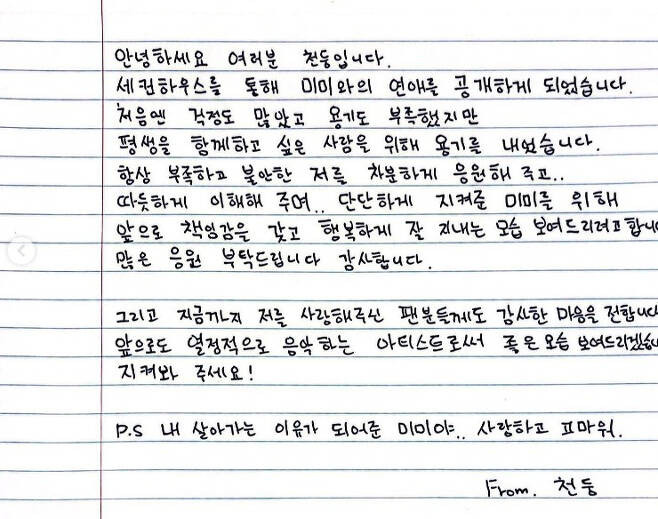 안녕하세요 여러분 천둥입니다.
세컨하우스를 통해 미미와의 연애를 공개하게 되었습니다.
처음엔 걱정도 많았고 용기도 부족했지만
평생을 함께하고 싶은 사람을 위해 용기를 내었습니다.
항상 부족하고 불안한 저를 차분하게 응원해 주고..
따듯하게 이해해 주며.. 단단하게 지켜준 미미를 위해
앞으로 책임감을 갖고 행복하게 잘 지내는 모습 보여드리려고 합니
많은 응원 부탁드립니다 감사합니다.
그리고 지금까지 저를 사랑해주신 팬분들께도 감사한 마음을 전합니다
앞으로도 열정적으로 음악하는 아티스트로써 좋은모습 보여드리겠습
지켜봐 주세요!
P.S 내 살아가는 이유가 되어준 미미야.. 사랑하고 고마워.
From. 천둥